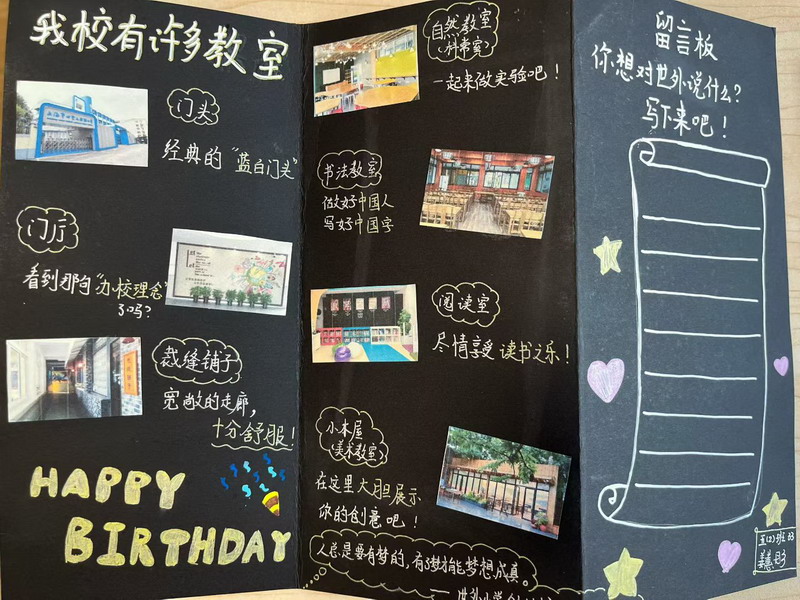 我校有许多教室
门头
经典的“蓝白门头”
门厅
看到那句“办校理念”
了吗?
裁缝铺子
宽敞的走廊，
十分舒服!
HAPPY
BIRTHDAY
自然教室
一起来做实验吧!
书法教室
做好中国人
写好中国字
阅读室
尽情享受读书之乐!
小木屋
(美术教室)
在这里大胆展示
你的创意吧!
人总是要有梦的，有梦才能梦想成真。
留言板
你想对世外说什么?
写下来吧!